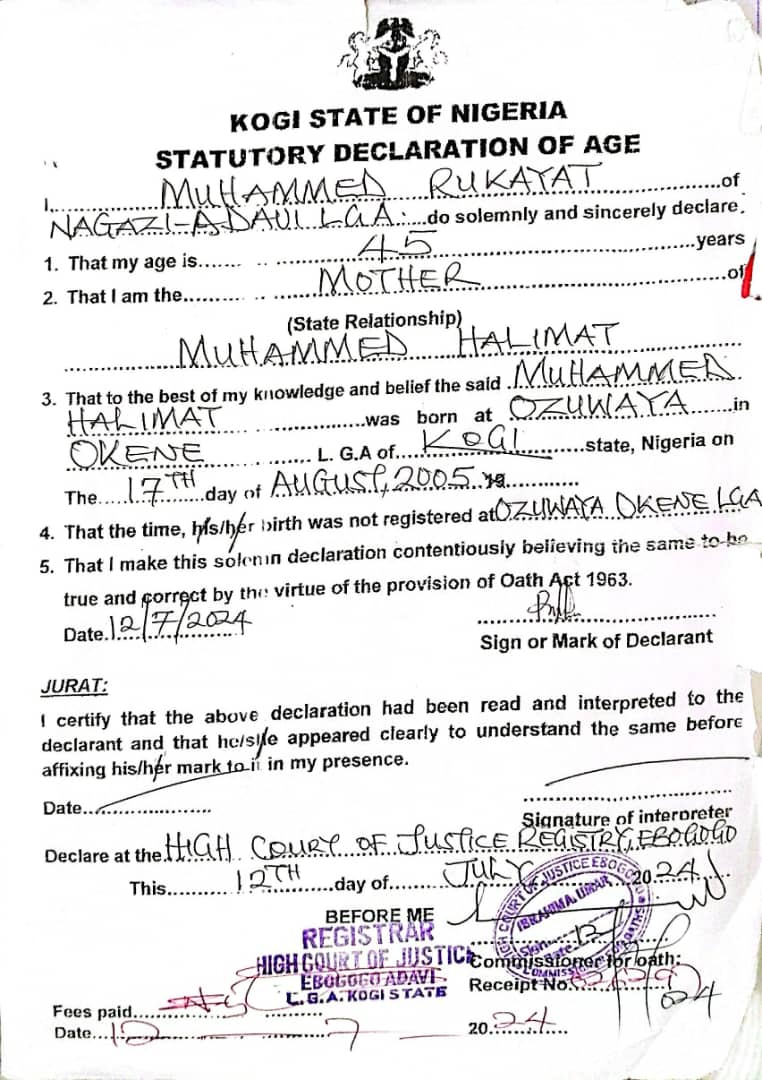 KOGI STATE OF NIGERIA
STATUTORY DECLARATION OF AGE
I, MUHAMMED RUKAYAT of
NAGAZI-ADAVI LGA. do solemnly and sincerely declare.
1. That my age is 45 years
2. That I am the MOTHER of
(State Relationship)
MUHAMMED HALIMAT
3. That to the best of my knowledge and belief the said MUHAMMED
HALIMAT was born at OZUWAYA in
OKENE L. G.A of KOGI state, Nigeria on
The 17TH day of AUGUST, 2005 19
4. That the time, his/her birth was not registered at OZUWAYA OKENE LGA
5. That I make this solemn declaration contentiously believing the same to be
true and correct by the virtue of the provision of Oath Act 1963.
Date. 12/7/2024
Sign or Mark of Declarant
JURAT:
I certify that the above declaration had been read and interpreted to the
declarant and that he/she appeared clearly to understand the same before
affixing his/her mark to it in my presence.
Date
Signature of interpreter
Declare at the HIGH COURT OF JUSTICE REGISTRY, EBOGOGO
This 12TH day of JULY 2024
BEFORE ME
REGISTRAR
HIGH COURT OF JUSTICE
EBOGOGO ADAVI
L.G.A. KOGI STATE
HIGH COURT OF JUSTICE EBOGOGO
IBRAHIM A. UMAR
Sign
Date
Commissioner for oath:
Receipt No.
Fees paid
Date 12 7 2024